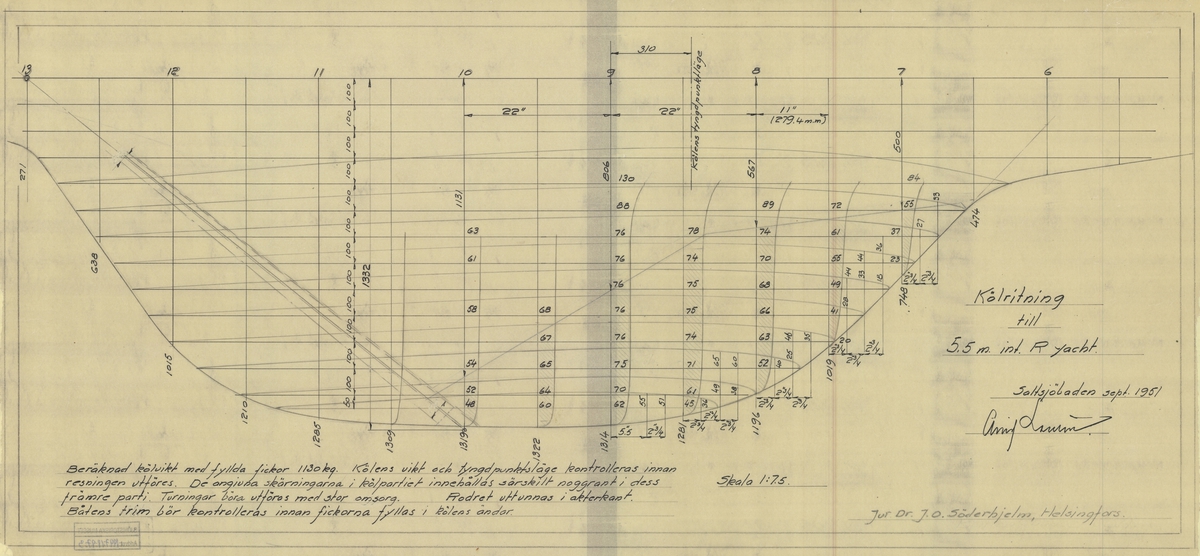 310
13 12 11 10 9 8 7 6
22" 22" 11"
(279.4 m.m)
Kölens tyngdpunktsläge
100 100 100 100 100 100 100 100 100 100 100 100 50
1332
271
638
1015
1210
1285
1309
1131
1319
1322
806
1314
1281
567
1196
1019
500
748
474
63
61
58
54
52
48
68
67
65
64
60
130
88
76
76
76
76
76
75
70
62
78
74
75
75
74
71
61
45
89
74
70
68
66
63
52
72
61
55
49
41
20
84
55
37
23
33
27
36
44
33
18
44
28
55
51
5.5
Kölritning
till
5.5 m. int. R yacht.
Saltsjöbaden sept. 1951
Skala 1:7.5.
Beräknad kölvikt med fyllda fickor 1130 kg. Kölens vikt och tyngdpunktsläge kontrolleras innan
resningen utföres. De angivna skärningarna i kölpartiet innehållas särskilt noggrant i dess
främre parti. Toningar böra utföras med stor omsorg. Rodret uttunnas i akterkant.
Båtens trim bör kontrolleras innan fickorna fyllas i kölens ändar.
Jur Dr. J. O. Söderhjelm, Helsingfors.